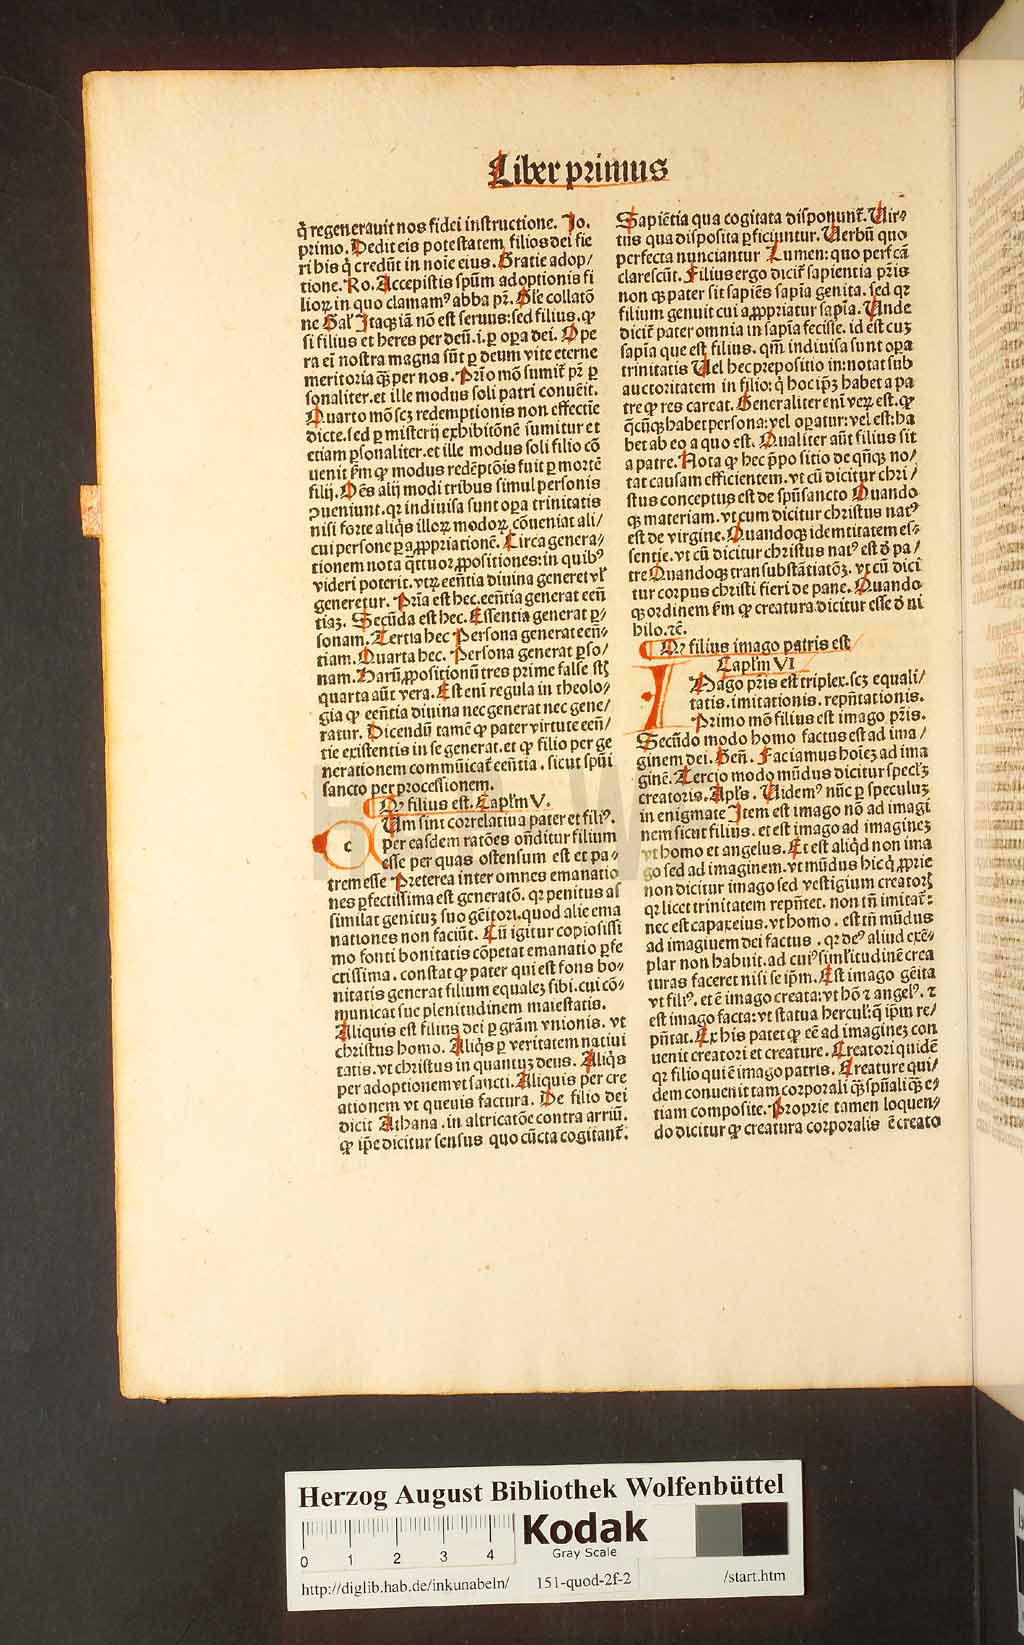 Liber primus
q̇ regenerauit nos fidei instructione. Jo.
primo. Dedit eis potestatem filios dei fie
ri his q̇ credūt in noīe eius. Gratie adop/
tione. Ro. Accepistis spūm adoptionis fi
lioꝝ in quo clamamꝰ abba pr̄. Sic̄ collatō
ne Gal̄ Itaqꝫ iā nō est seruus: sed filius. ꝙ
si filius et heres per deū. i. ꝑ oꝑa dei. Ope
ra eī nostra magna sūt ꝑ deum vite eterne
meritoria q̄ꝫ per nos. Prīo mō sumit̄ pr̄ ꝑ
sonaliter. et ille modus soli patri conuēit.
Quarto mō scꝫ redemptionis non effectiē
dicte. sed ꝑ misterij exhibitōnē sumitur et
etiam ꝑsonaliter. et ille modus soli filio cō
uenit km̄ ꝙ modus redēptōis fuit ꝑ mortē
filij. Oēs alij modi tribus simul personis
ꝯueniunt. qꝛ indiuisa sunt oꝑa trinitatis
nisi forte aliq̄s illoꝝ modoꝝ cōueniat ali/
cui persone ꝑ aꝓpriationē. Circa genera/
tionem nota q̄ttuor ꝓpositiones: in quibꝰ
videri poterit. vtꝝ eēntia diuina generet vl̄
generetur. Pria est hec. eēntia generat eēn
tiaꝫ. Secūda est hec. Essentia generat ꝑ/
sonam. Tertia hec Persona generat eēn/
tiam. Quarta hec. Persona generat ꝑso/
nam. Harū ꝓpositionū tres prime false stꝫ
quarta aūt vera. Est enī regula in theolo/
gia ꝙ eēntia diuina nec generat nec gene/
ratur. Dicendū tamē ꝙ pater virtute eēn/
tie existentis in se generat. et ꝙ filio per ge
nerationem commūicat̄ eēntia. sicut spūi
sancto per processionem.
Qꝰ filius est. Capl̄m V.
c Um sint correlatiua pater et filiꝰ.
per easdem ratōes oñditur filium
esse per quas ostensum est et pa/
trem esse Preterea inter omnes emanatio
nes ꝑfectissima est generatō. qꝛ penitus as
similat genituꝫ suo gēitori. quod alie ema
nationes non faciūt. Cū igitur copiosissi
mo fonti bonitatis cōpetat emanatio ꝑfe
ctissima. constat ꝙ pater qui est fons bo/
nitatis generat filium equaleꝫ sibi. cui cō/
municat sue plenitudinem maiestatis.
Aliquis est filius dei ꝑ grām vnionis. vt
christus homo. Aliq̄s ꝑ veritatem natiui
tatis. vt christus in quantuꝫ deus. Aliq̄s
per adoptionem vt sancti. Aliquis per cre
ationem vt queuis factura. De filio dei
dicit Athana. in altricatōe contra arriū.
ꝙ ip̄e dicitur sensus quo cūcta cogitant̄.
Sapiētia qua cogitata disponunt̄. Uir/
tus qua disposita ꝑficiuntur. Uerbū quo
perfecta nunciantur Lumen: quo perfcā
clarescūt. Filius ergo dicit̄ sapientia pr̄is
non qꝫ pater sit sapiēs sapīa genita. sed qꝛ
filium genuit cui aꝓpriatur sapīa. Unde
dicit̄ pater omnia in sapīa fecisse. id est cuꝫ
sapīa que est filius. qm̄ indiuisa sunt oꝑa
trinitatis Uel hec prepositio in: notat sub
auctoritatem in filio: q̇ hoc ip̄ꝫ habet a pa
tre ꝙ res careat. Generaliter enī veꝝ est. ꝙ
q̄cūqꝫ habet persona: vel oꝑatur: vel est: ha
bet ab eo a quo est. Qualiter aūt filius sit
a patre. Nota ꝙ hec p̄positio de qn̄qꝫ no/
tat causam efficientem. vt cū dicitur chri/
stus conceptus est de spūsancto Quando
qꝫ materiam. vt cum dicitur christus natꝰ
est de virgine. Quandoqꝫ idemtitatem es/
sentie. vt cū dicitur christus natꝰ est ꝺ pa/
tre Quandoqꝫ transubstātiatōꝫ. vt cū dici
tur corpus christi fieri de pane. Quando
qꝫ ordinem km̄ ꝙ creatura dicitur esse ꝺ ni
hilo. ꝛc̄.
Qꝰ filius imago patris est
Capl̄m VI
I Mago pr̄is est triplex. scꝫ equali/
tatis. imitationis. repn̄tationis.
Primo mō filius est imago pr̄is.
Secūdo modo homo factus est ad ima/
ginem dei. Gen̄. Faciamus hoīeꝫ ad ima
ginē. Tercio modo mūdus dicitur specl̄ꝫ
creatoris. Apl̄s. Uidemꝰ nūc ꝑ speculuꝫ
in enigmate Item est imago nō ad imagi
nem sicut filius. et est imago ad imagineꝫ
vt homo et angelus. Et est aliq̇d non ima
go sed ad imaginem. vt mūdus hic q̇ ꝓprie
non dicitur imago sed vestigium creatorꝫ
qꝛ licet trinitatem repn̄tet. non tn̄ imitat̄:
nec est capax eius. vt homo. est tn̄ mūdus
ad imaginem dei factus. qꝛ deꝰ aliud exē/
plar non habuit. ad cuiꝰ simil̄itudinē crea
turas faceret nisi se ip̄m. Est imago gēita
vt filiꝰ. et ē imago creata: vt hō ꝛ angelꝰ. ꝛ
est imago facta: vt statua hercul̄: q̄ ip̄m re/
pn̄tat. Ex his patet ꝙ eē ad imagineꝫ con
uenit creatori et creature. Creatori quidē
qꝛ filio qui ē imago patris. Creature qui/
dem conuenit tam corporali q̄ꝫ spūali q̄ꝫ e/
tiam composite. Proprie tamen loquen/
do dicitur ꝙ creatura corporalis ē creato
Herzog August Bibliothek Wolfenbüttel
0 1 2 3 4
Kodak
Gray Scale
http://diglib.hab.de/inkunabeln/ 151-quod-2f-2 /start.htm